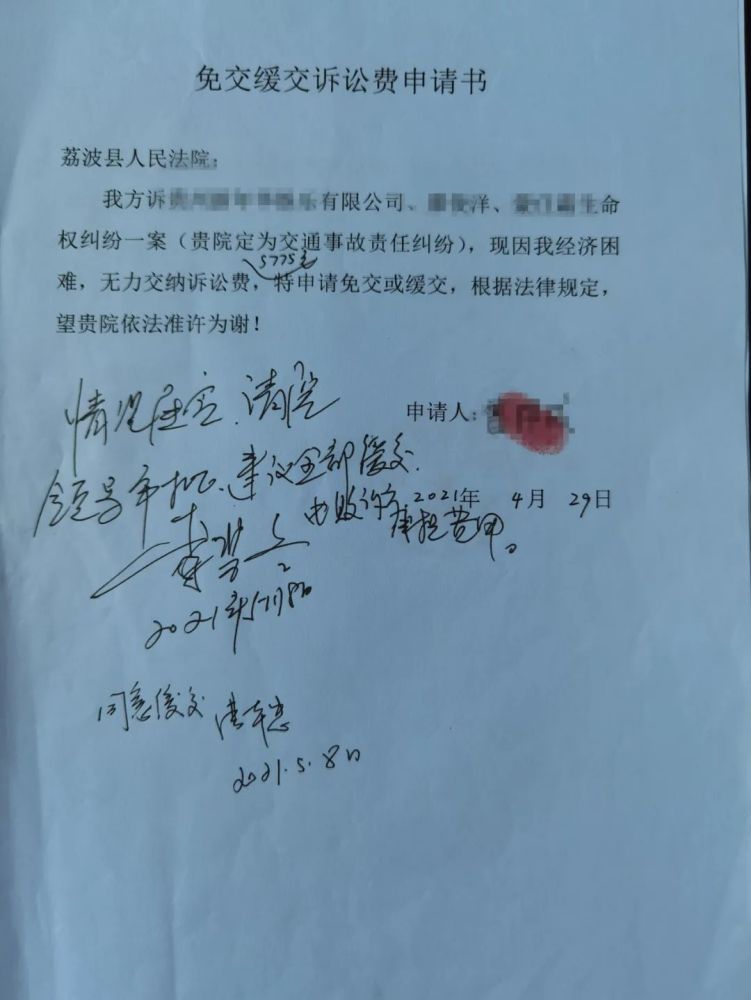 免交缓交诉讼费申请书
荔波县人民法院:
我方诉 有限公司、 洋、 生命
权纠纷一案（贵院定为交通事故责任纠纷），现因我经济困
5775元
难，无力交纳诉讼费，特申请免交或缓交，根据法律规定，
望贵院依法准许为谢！
情况属实、请院
申请人:
领导审批、建议全部缓交.
2021年 4月 29日
由败诉方
承担费用。
2021年5月8日
同意缓交
2021.5.8日